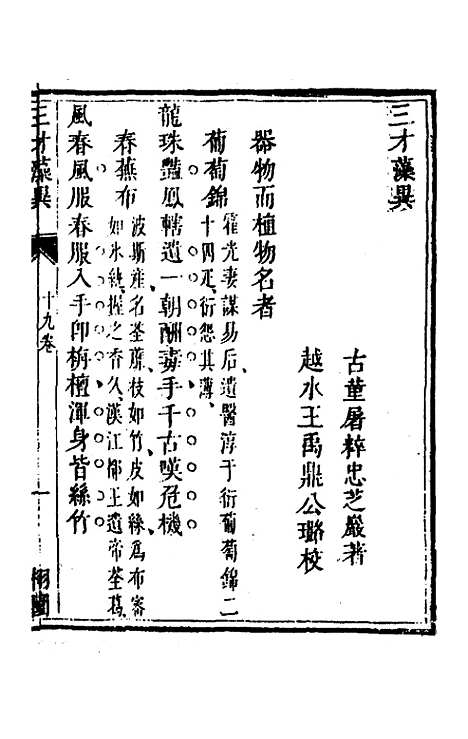 三才藻異
古堇屠粹忠芝巖著
越水王禹鼎公璐校
器物而植物名者
葡萄錦
霍光妻謀易后遺醫淳于衍葡萄錦二
十四疋衍怨其薄
龍珠豔鳳轄遺一朝酬毒手千古嘆危機
春蕪布
波斯產名荃蘼枝如竹皮如綠爲布審
如氷紈握之香久漢江都王遺帝荃葛
風春風服春服入手卽栴檀渾身皆絲竹
三才藻異
十九卷
一
栩園